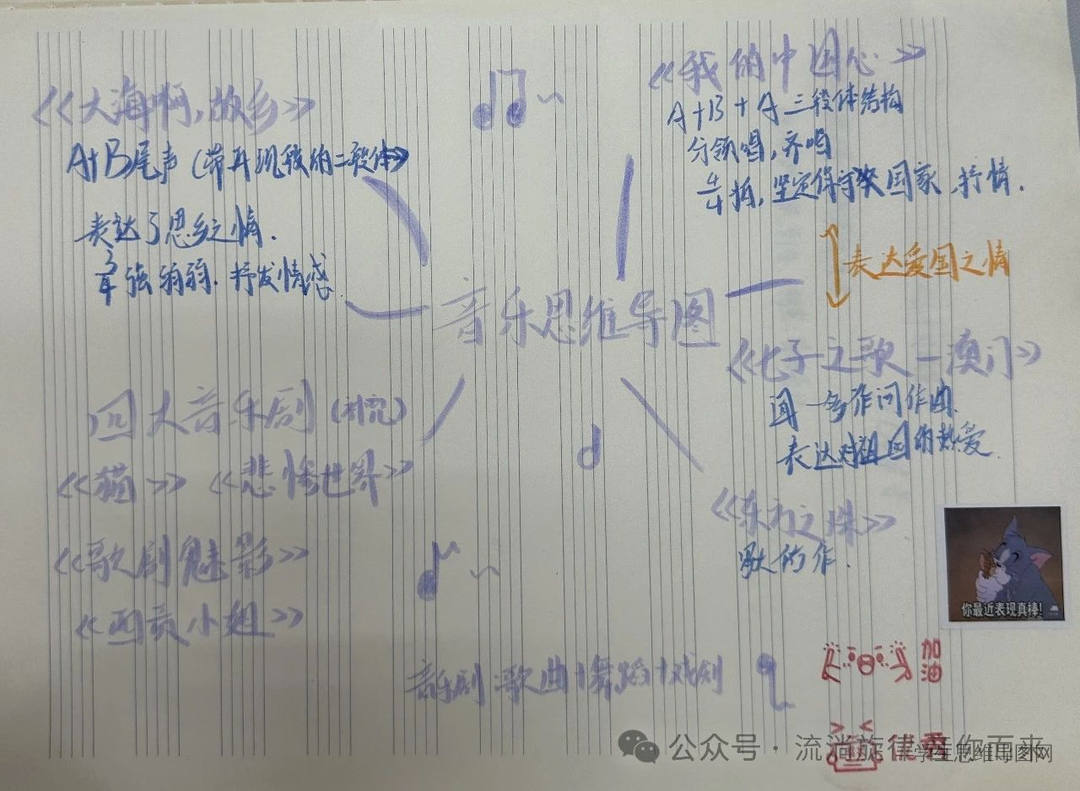 《大海啊,故乡》
A+B尾声(带再现段的二段体)
表达了思乡之情.
3/4 强弱弱.抒发情感.
《我的中国心》
A+B+A 三段体结构
分领唱,齐唱
4/4拍,坚定保守决国家,抒情.
表达爱国之情
音乐思维导图
《七子之歌—澳门》
闻一多作词作曲.
表达对祖国的热爱.
《东方之珠》
作.
四大音乐剧
《猫》《悲惨世界》
《歌剧魅影》
《西贡小姐》
音乐剧:歌曲+舞蹈+戏剧
你最近表现真棒!
加油
优秀
公众号·流淌旋律 你而来
学生思维导图网